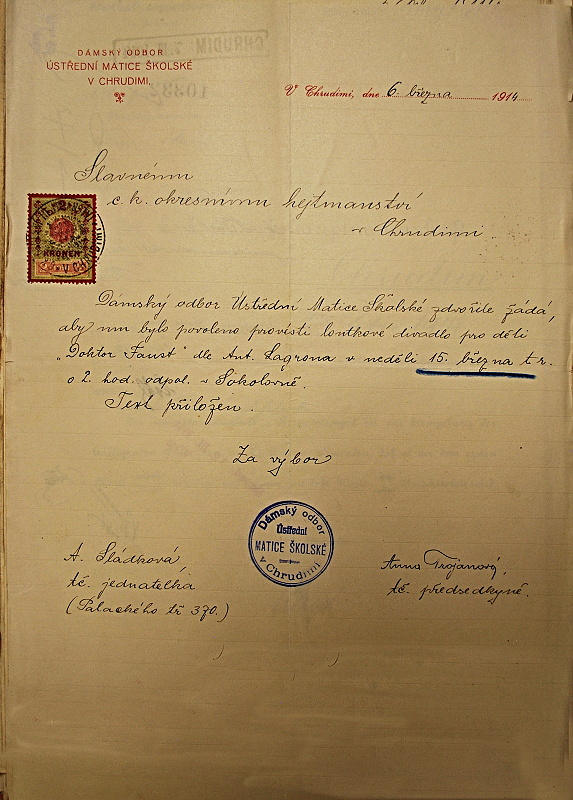 DÁMSKÝ ODBOR
ÚSTŘEDNÍ MATICE ŠKOLSKÉ
V CHRUDIMI.
V Chrudimi, dne 6. března 1914
Slavnému
c. k. okresnímu hejtmanství
v Chrudimi.
KRONEN
Dámský odbor Ústřední Matice Školské zdvořile žádá,
aby mu bylo povoleno provésti loutkové divadlo pro děti
„Doktor Faust" dle Ant. Lagrona v neděli 15. března t. r.
o 2. hod. odpol. v Sokolovně.
Text přiložen.
Za výbor
Dámský odbor
Ústřední
MATICE ŠKOLSKÉ
v Chrudimi
A. Sládková,
tč. jednatelka
(Palackého tř 370.)
Anna Trojanový,
tč. předsedkyně.
CHRUDIM